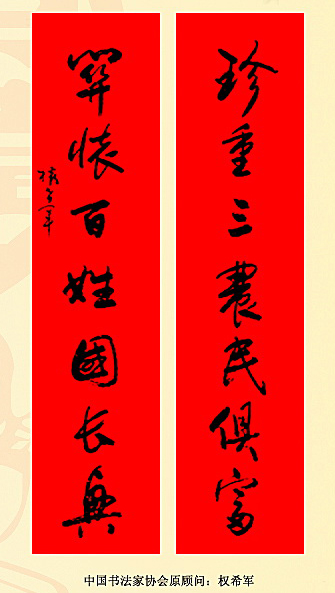 珍重三農民俱富
關懷百姓國长興
权希军
中国书法家协会原顾问：权希军